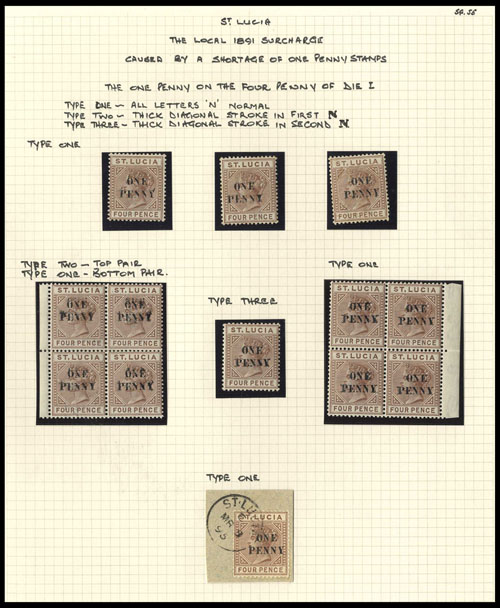 SG.55
ST LUCIA
THE LOCAL 1891 SURCHARGE
CAUSED BY A SHORTAGE OF ONE PENNY STAMPS
THE ONE PENNY ON THE FOUR PENNY OF DIE I
TYPE ONE – ALL LETTERS 'N' NORMAL
TYPE TWO – THICK DIAGONAL STROKE IN FIRST N
TYPE THREE – THICK DIAGONAL STROKE IN SECOND N
TYPE ONE
ST. LUCIA
ONE
PENNY
FOUR PENCE
ST. LUCIA
ONE
PENNY
FOUR PENCE
ST. LUCIA
ONE
PENNY
FOUR PENCE
TYPE TWO – TOP PAIR
TYPE ONE – BOTTOM PAIR.
ST. LUCIA ST. LUCIA
ONE ONE
PENNY PENNY
FOUR PENCE FOUR PENCE
ST. LUCIA ST. LUCIA
ONE ONE
PENNY PENNY
FOUR PENCE FOUR PENCE
TYPE THREE
ST. LUCIA
ONE
PENNY
FOUR PENCE
TYPE ONE
ST. LUCIA ST. LUCIA
ONE ONE
PENNY PENNY
FOUR PENCE FOUR PENCE
ST. LUCIA ST. LUCIA
ONE ONE
PENNY PENNY
FOUR PENCE FOUR PENCE
TYPE ONE
ST. LUCIA
ONE
PENNY
FOUR PENCE